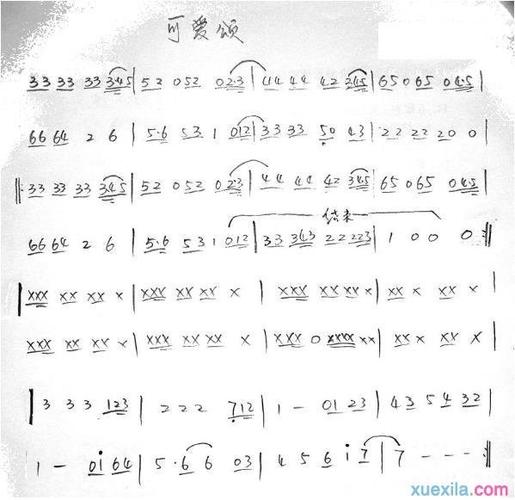 可爱颂
33 33 33 345 | 52 052 02·3 | 44 44 42 245 | 65 065 04·5 |
66 64 2 6 | 5·6 53 1 012 | 33 33 50 43 | 22 22 20 0 |
‖: 33 33 33 345 | 52 052 02·3 | 44 44 42 345 | 65 065 04·5 |
66 64 2 6 | 5·6 53 1 012 | 33 343 22 223 | 1 0 0 0 :‖
结束
| xxx xx xx x | xxx xx xx x | xxx xx xx xx | xx xx x |
xxx xx xx x | xxx xx xx x | xxx 0 xxxx xx | xx x xx |
| 3 3 3 123 | 2 2 2 712 | 1 - 01 23 | 43 5 4 32 |
1 - 0i 64 | 5·6 6 03 | 4 5 6 i7 | 7 - - - :‖
xuexila.com